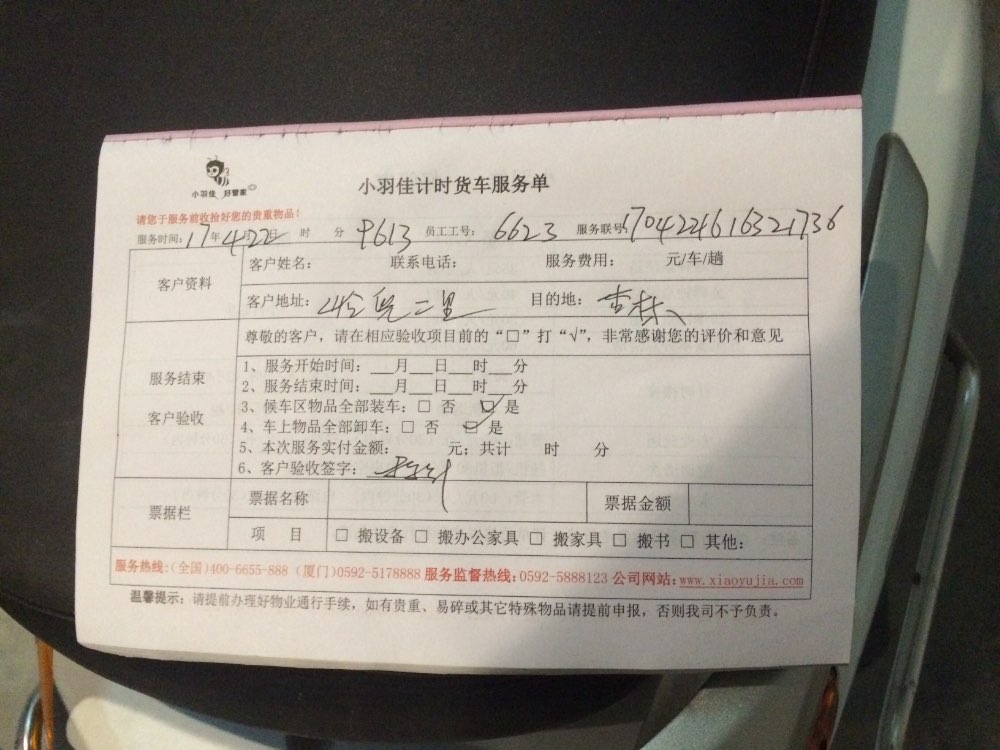 小羽佳 好管家
小羽佳计时货车服务单
请您于服务前收拾好您的贵重物品！
服务时间：17年4月22日 时 分 9613 员工工号： 6623 服务联号：1704224616321736
客户资料
客户姓名： 联系电话： 服务费用： 元/车/趟
客户地址： 二里 目的地： 杏林
尊敬的客户，请在相应验收项目前的“□”打“√”，非常感谢您的评价和意见
服务结束
客户验收
1、服务开始时间：___月___日___时___分
2、服务结束时间：___月___日___时___分
3、候车区物品全部装车：□ 否 ☑ 是
4、车上物品全部卸车：□ 否 ☑ 是
5、本次服务实付金额： 元；共计 时 分
6、客户验收签字：
票据栏
票据名称 票据金额
项 目 □ 搬设备 □ 搬办公家具 □ 搬家具 □ 搬书 □ 其他：
服务热线：(全国)400-6655-888 (厦门)0592-5178888 服务监督热线：0592-5888123 公司网站：www.xiaoyujia.com
温馨提示：请提前办理好物业通行手续，如有贵重、易碎或其它特殊物品请提前申报，否则我司不予负责。